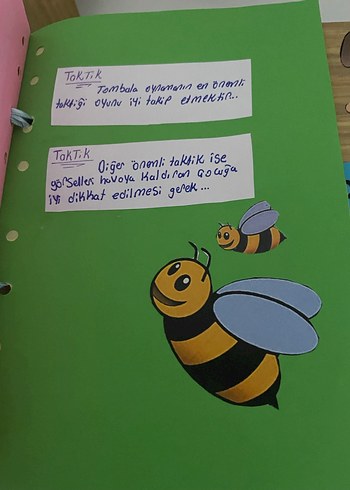 TakTik
Tombala oynamanın en önemli
taktiği oyunu iyi takip etmektir...
TakTik
Diğer önemli taktik ise
görselleri havaya kaldıran çocuğa
iyi dikkat edilmesi gerek...